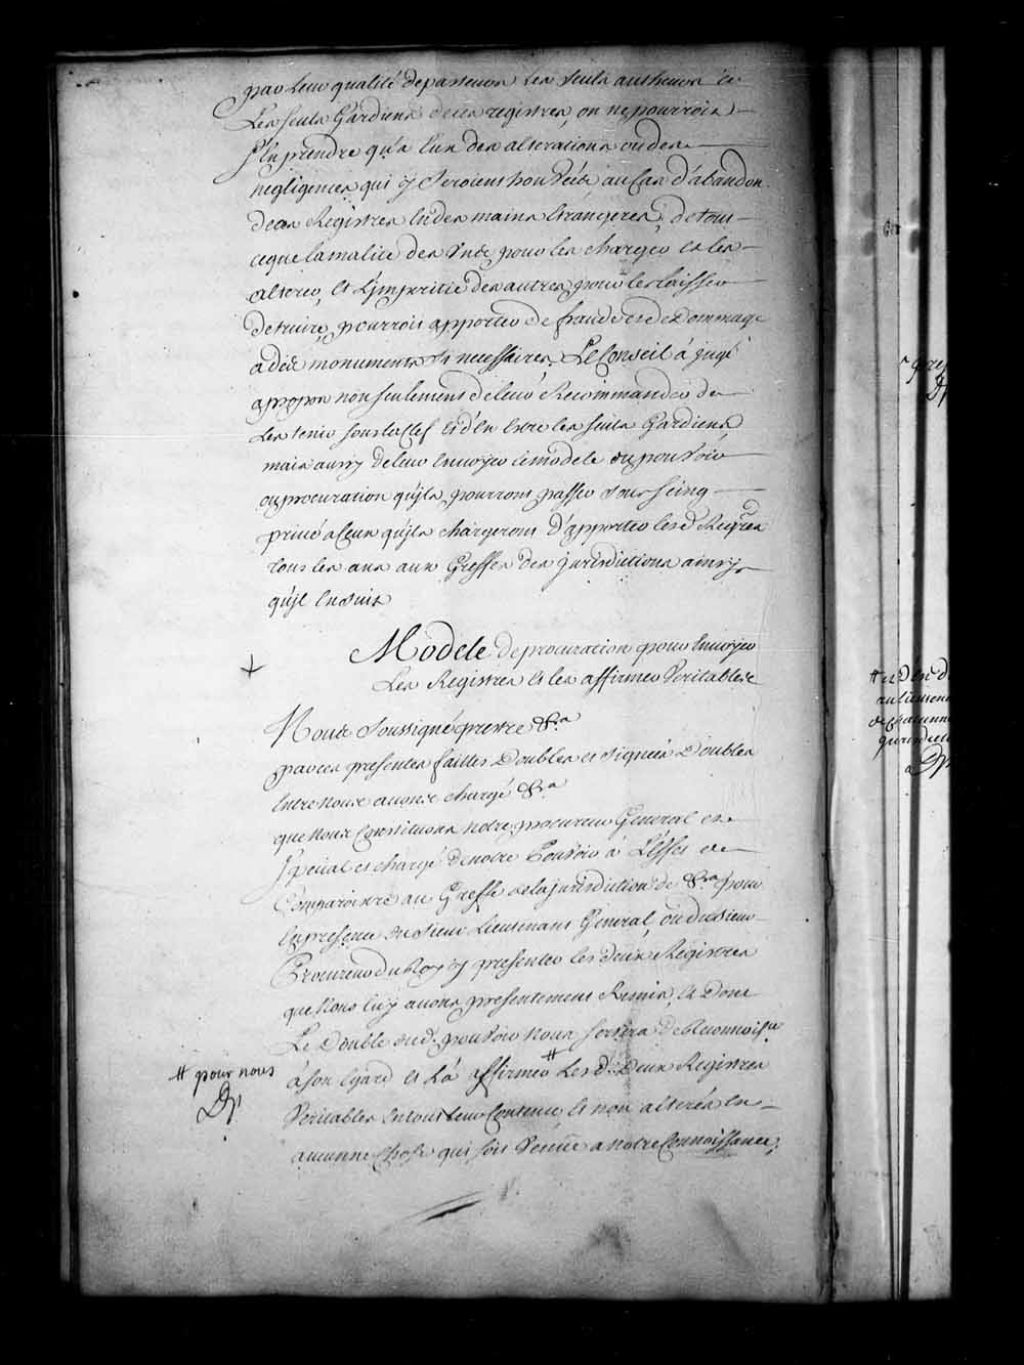 par leur qualité de pasteurs les seuls autheurs et
Les seuls Gardiens de ces registres, on ne pourroit
s'en prendre qu'a Eux des alterations ou des
negligences qui y seroient trouvées au Cas d'abandon
de ces Registres En des mains Etrangeres, de tout
ce que la malice des uns pour les charger et les
alterer, Et L'imperitie des autres pour les laisser
detruire, pourroit apporter de fraude et de Dommage
a des monuments si necessaires. Le Conseil á jugé
apropos non seulement de leur Recommander de
Les tenir sous la Clef Et d'en Etre les seuls Gardiens
mais aussy de leur Envoyer le modele du pouvoir
ou procuration qu'jls pourront passer sous seing
privé a Ceux qu'jls chargeront d'apporter lesd. Regres
tous les ans aux Greffes des jurisdictions ainsy
qu'jl Ensuit
Modele de procuration pour Envoyer
Les Registres Et les affirmer Veritables
Nous Soussigné prestre &a
par ces presentes faittes Doubles et signées Doubles
Entre nous avons chargé &a
que nous Constituons notre procureur General et
Special et chargé de notre Pouvoir à L'Effet de
Comparoitre au Greffe de la jurisdiction de &a pour
En presence du Sieur Lieutenant General, ou du sieur
Procureur du Roy y presenter les deux Registres
que Nous luy avons presentement Remis, Et Dont
Le Double dud. pouvoir nous servira de Reconnoisce
à son Egard Et Là affirmer # Les d. Deux Registres
# pour nous
Veritables En tout leur Contenu Et non alterés En
aucunne Chose qui soit Venüe a notre Connoissance;